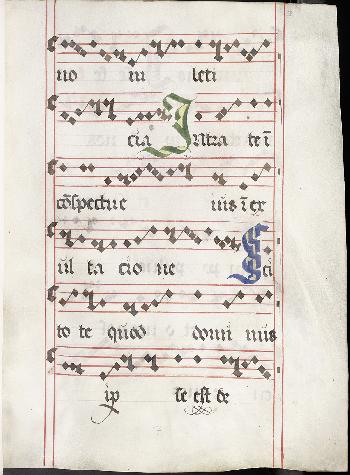 no in leti
cia Intra te ī
cōspectue ius ī ex
ul ta cio ne Sci
to te quod domi nus
ip se est de